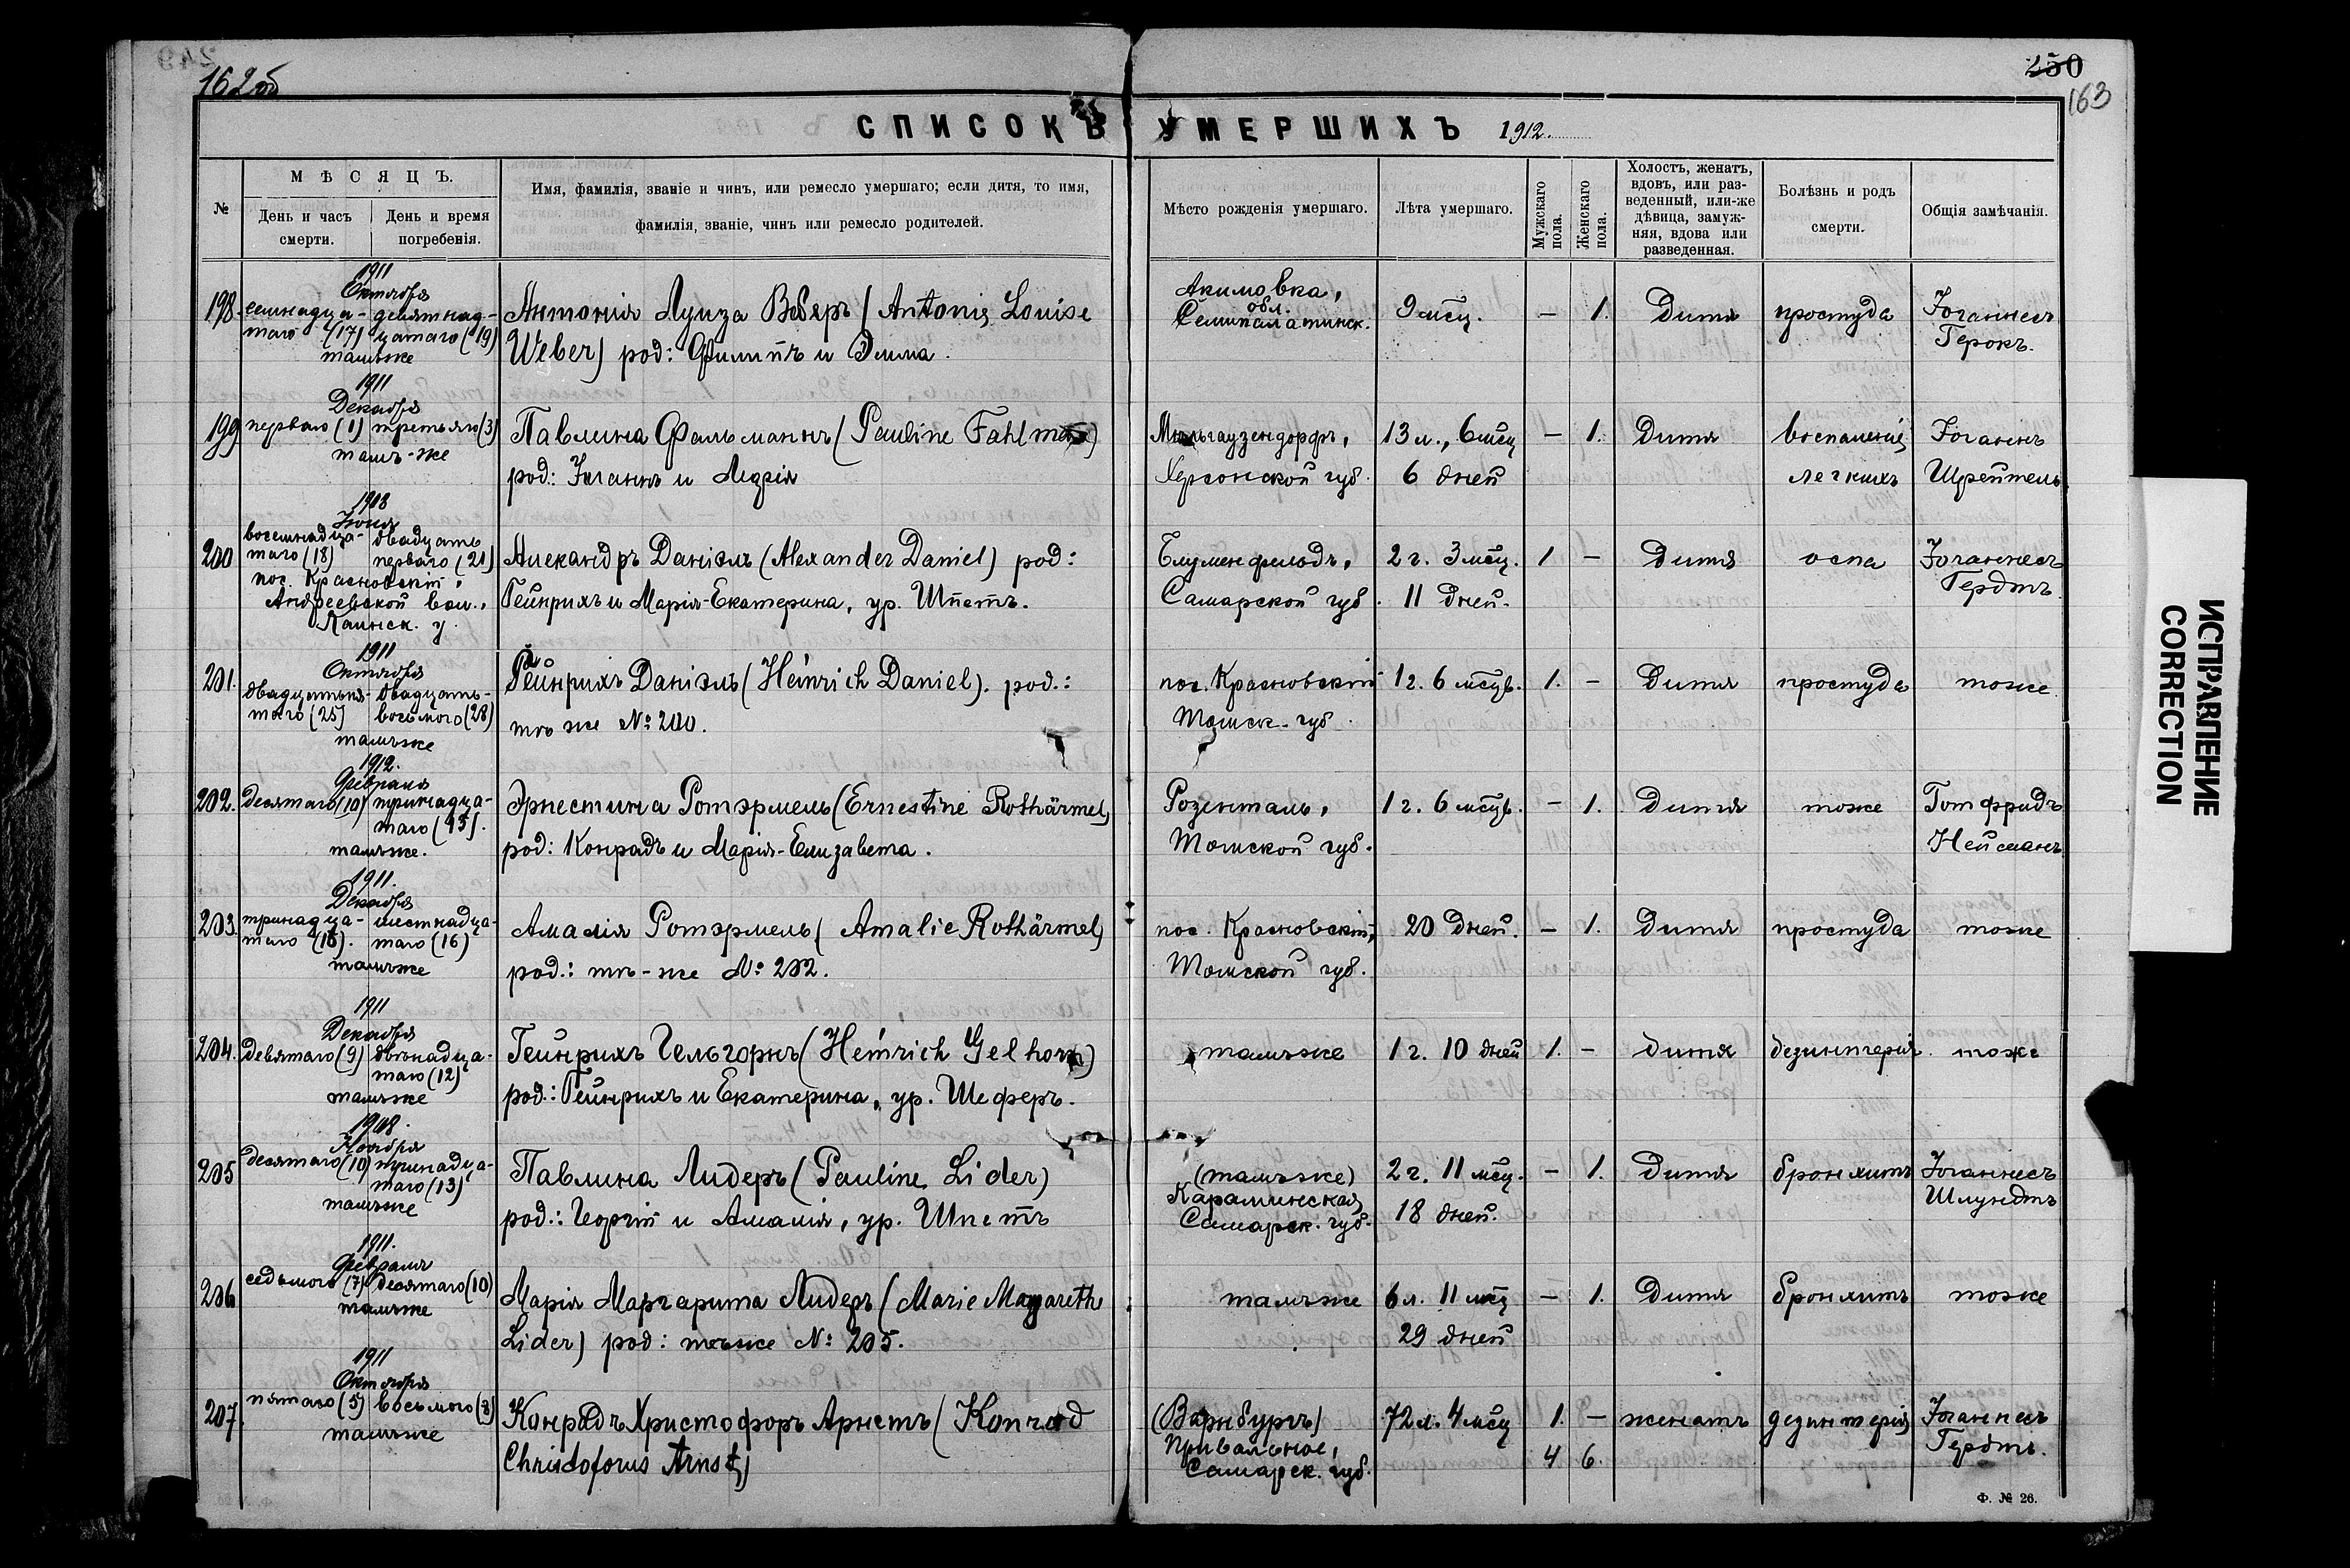 249
162об
250
163
СПИСОКЪ УМЕРШИХЪ 1912.
№
МѢСЯЦЪ.
День и часъ смерти.
День и время погребенія.
Имя, фамилія, званіе и чинъ, или ремесло умершаго; если дитя, то имя,
фамилія, званіе, чинъ или ремесло родителей.
Мѣсто рожденія умершаго.
Лѣта умершаго.
Мужскаго пола.
Женскаго пола.
Холостъ, женатъ,
вдовъ, или раз-
веденный, или-же
дѣвица, замуж-
няя, вдова или
разведенная.
Болѣзнь и родъ
смерти.
Общія замѣчанія.
1911
Октября
198. семнадца- девятнад-
таго (17) цатаго (19)
тамъже
Антонія Луиза Веберъ (Antonie Louise
Weber) род: Филипъ и Эмма.
Акимовка,
обл.
Семипалатинск.
9 мсц. — 1. Дитя простуда Іоганнесъ
Герокъ.
1911
Декабря
199 перваго (1) третьяго (3)
тамъ-же
Павлина Фальманнъ (Pauline Fahlman)
род: Іоганнъ и Марія
Мюльгаузендорфъ,
Херсонской губ.
13 л., 6 мсц
6 дней
— 1. Дитя воспаленіе
легкихъ
Іоганнъ
Шрейтель
1908
Іюня
200 восемнадца- двадцать
таго (18) перваго (21)
пос. Красновскій,
Андреевской вол.,
Каинск. у.
Александръ Даніэль (Alexander Daniel) род:
Гейнрихъ и Марія-Екатерина, ур. Шпетъ.
Блуменфельдъ,
Самарской губ.
2 г. 3 мсц.
11 дней.
1 — дитя оспа Іоганнесъ
Гердтъ.
1911
Октября
201. двадцатьпя- двадцать-
таго (25) восьмого (28)
тамъже
Гейнрихъ Даніэль (Heinrich Daniel). род.:
тѣ же № 200.
пос. Красновскій
Томск. губ.
1 г. 6 мсцв. 1. — Дитя простуда тоже
1912.
Февраля
202. десятаго (10) тринадца-
таго (13).
тамъже.
Эрнестина Ротэрмель (Ernestine Rothärmel)
род: Конрадъ и Марія-Елизавета.
Розенталь,
Томской губ.
1 г. 6 мсцв. — 1. дитя тоже Готфридъ
Нейманъ
1911.
Декабря
203. тринадца- шестнадца-
таго (13). таго (16)
тамъже
Амалія Ротэрмель (Amalie Rothärmel)
род.: тѣ-же № 202.
пос. Красновскій,
Томской губ.
20 дней. — 1. дитя простуда тоже
1911
Декабря
204. девятаго (9) двѣнадца-
таго (12)
тамъже
Гейнрихъ Гельгорнъ (Heinrich Gelhorn)
род.: Гейнрихъ и Екатерина, ур. Шеферъ.
тамъже 1 г. 10 дней 1. — дитя дезинтерія тоже
1908.
Ноября
205 десятаго (10) тринадца-
таго (13)
тамъже
Павлина Лидеръ (Pauline Lider)
род.: Георгій и Амалія, ур. Шпетъ
(тамъже)
Карамынская
Самарск. губ.
2 г. 11 мсц.
18 дней.
— 1. Дитя бронхитъ Іоганнесъ
Шлундтъ
1911.
Февраля
206 седьмого (7) десятаго (10)
тамъже
Марія Маргарита Лидеръ (Marie Magarethe
Lider) род: тѣже № 205.
тамъже 6 л. 11 мсц
29 дней
— 1. Дитя бронхитъ тоже
1911
Октября
207. пятаго (5) восьмого (8)
тамъже
Конрадъ Христофоръ Арнстъ (Konrad
Christoforus Arnst)
(Варнбургъ)
Привальное,
Самарск. губ.
72 л. 4 мсц 1. — женатъ дезинтерія Іоганнесъ
Гердтъ.
4 6.
Ф. № 26.
ИСПРАВЛЕНИЕ
CORRECTION